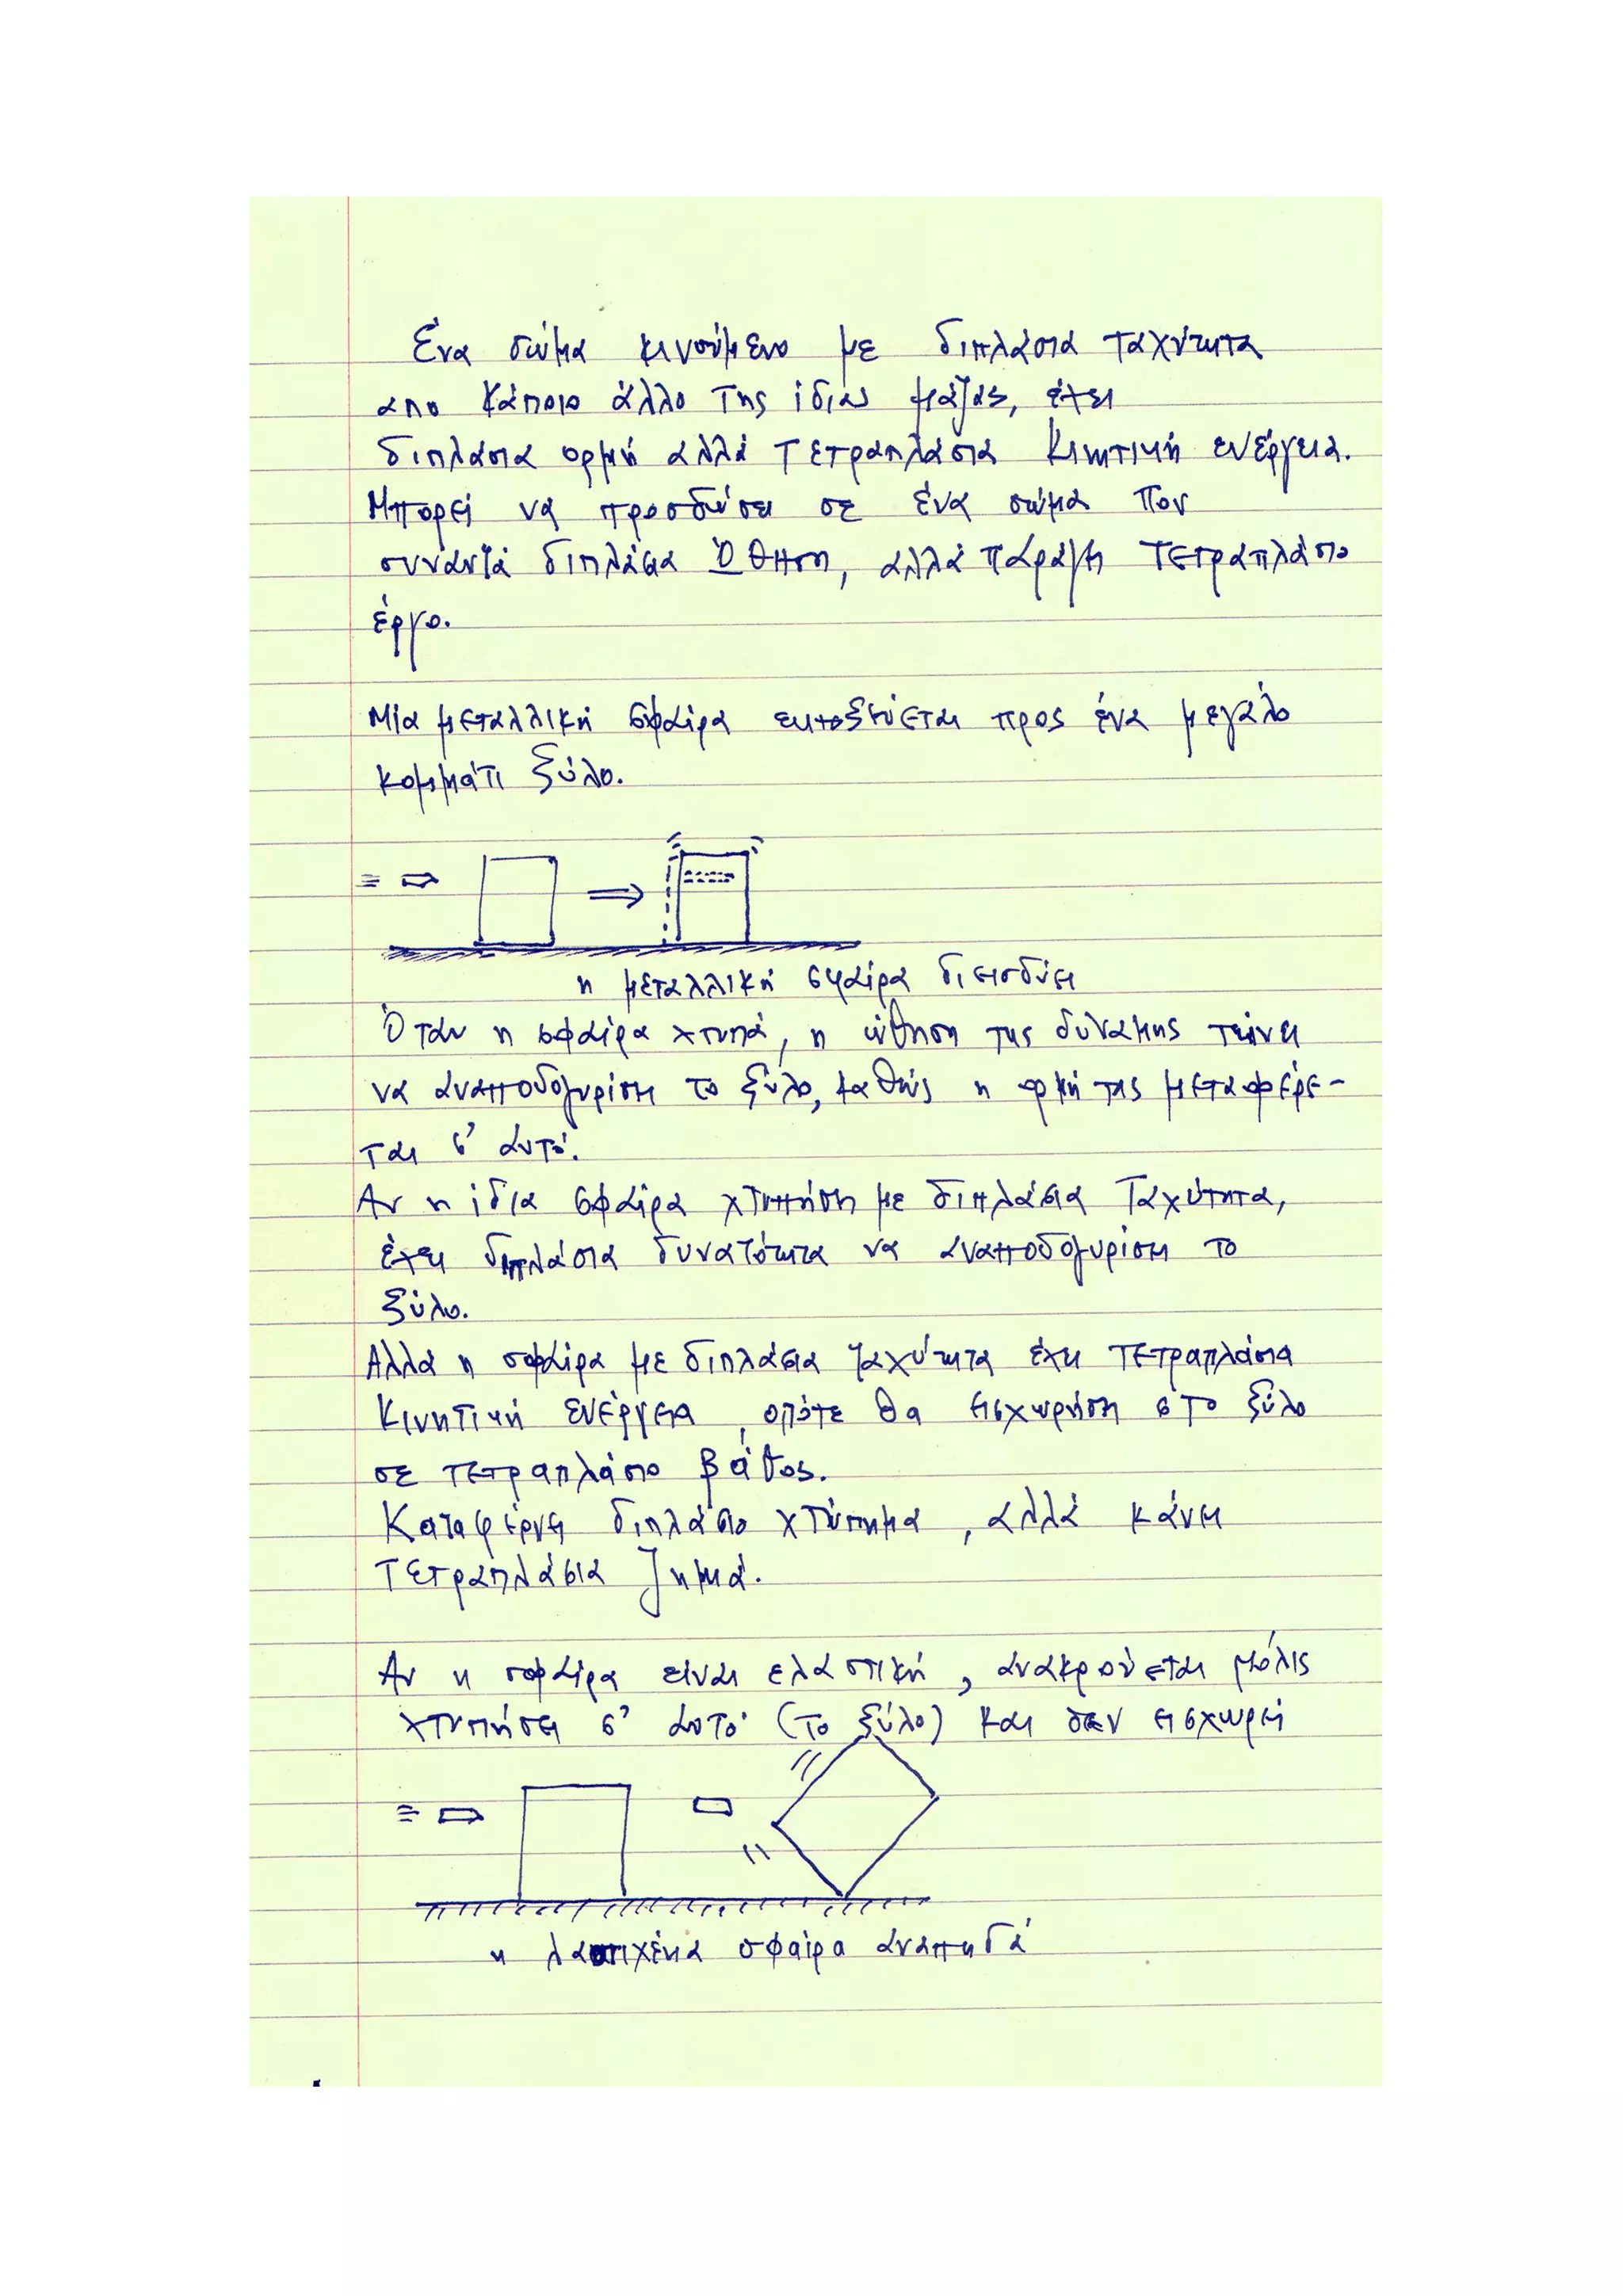 Ένα σώμα κινούμενο με διπλάσια ταχύτητα
απο κάποιο άλλο της ίδιας μάζας, έχει
διπλάσια ορμή αλλά τετραπλάσια κινητική ενέργεια.
Μπορεί να προσδώσει σε ένα σώμα που
συναντά διπλάσια ώθηση, αλλά παράγει τετραπλάσιο
έργο.
Μία μεταλλική σφαίρα εκτοξεύεται προς ένα μεγάλο
κομμάτι ξύλο.
η μεταλλική σφαίρα διεισδύει
Όταν η σφαίρα χτυπά, η ώθηση της δύναμης τείνει
να αναποδογυρίσει το ξύλο, καθώς η ορμή της μεταφέρε-
ται σ' αυτό.
Αν η ίδια σφαίρα χτυπήσει με διπλάσια ταχύτητα,
έχει διπλάσια δυνατότητα να αναποδογυρίσει το
ξύλο.
Αλλά η σφαίρα με διπλάσια ταχύτητα έχει τετραπλάσια
κινητική ενέργεια, οπότε θα εισχωρήσει στο ξύλο
σε τετραπλάσιο βάθος.
Καταφέρνει διπλάσιο χτύπημα, αλλά κάνει
τετραπλάσια ζημιά.
Αν η σφαίρα είναι ελαστική, ανακρούεται μόλις
χτυπήσει σ' αυτό (το ξύλο) και δεν εισχωρεί
η λαστιχένια σφαίρα αναπηδά